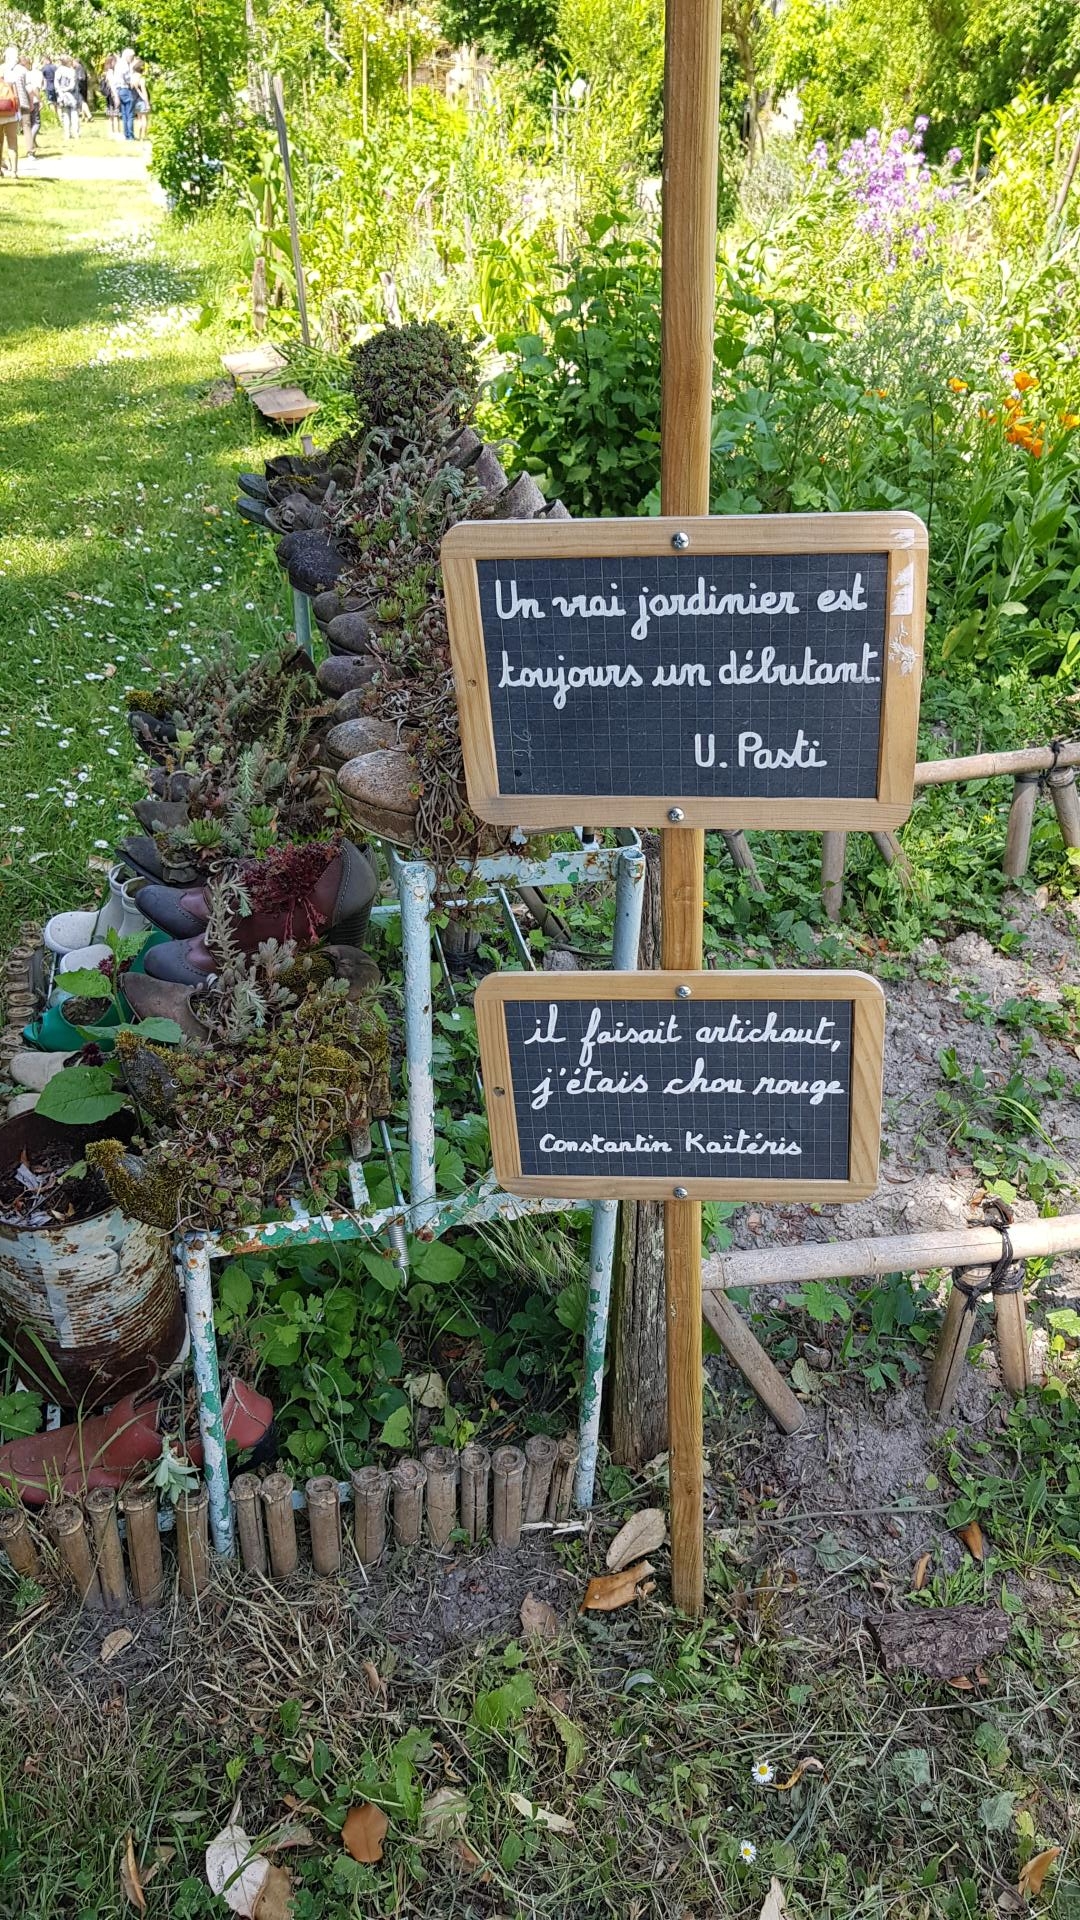 Un vrai jardinier est
toujours un débutant.
U. Pasti
il faisait artichaut,
j'étais chou rouge
Constantin Kaïtéris